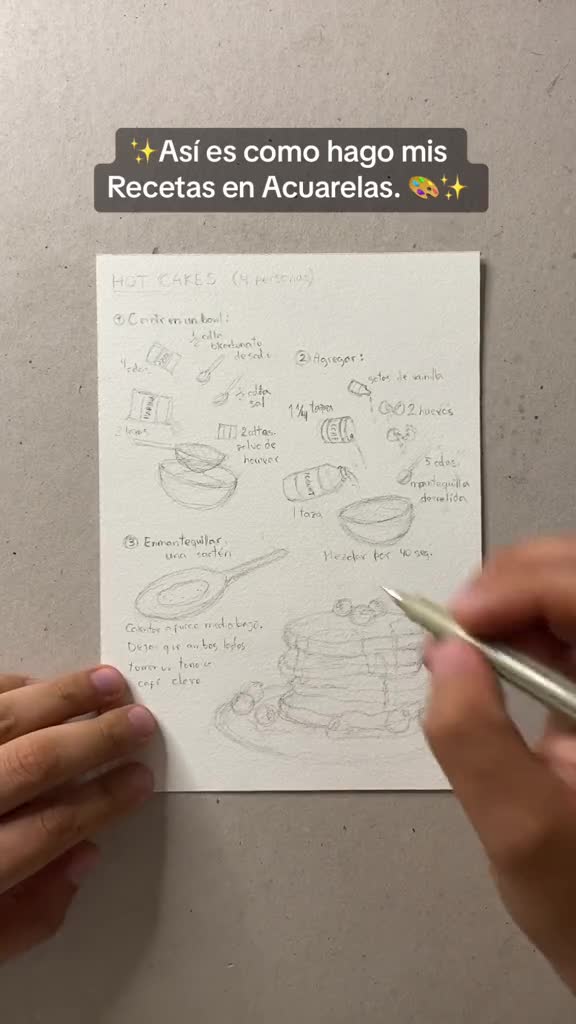 ✨Así es como hago mis
Recetas en Acuarelas. 🎨✨
HOT CAKES (4 personas)
① en un bowl:
½ cdta
bicarbonato
de sodio
4 cdas.
½ cdta
sal
2 cdtas.
polvo de
hornear
② Agregar:
gotas de vainilla
1 ¼ tazas
2 huevos
5 cdas.
mantequilla
derretida
YOGURT
1 taza
Mezclar por 40 seg.
③ Enmantequillar
una sartén
Calentar a fuego medio bajo.
Dejar que ambos lados
tomen un tono
café claro